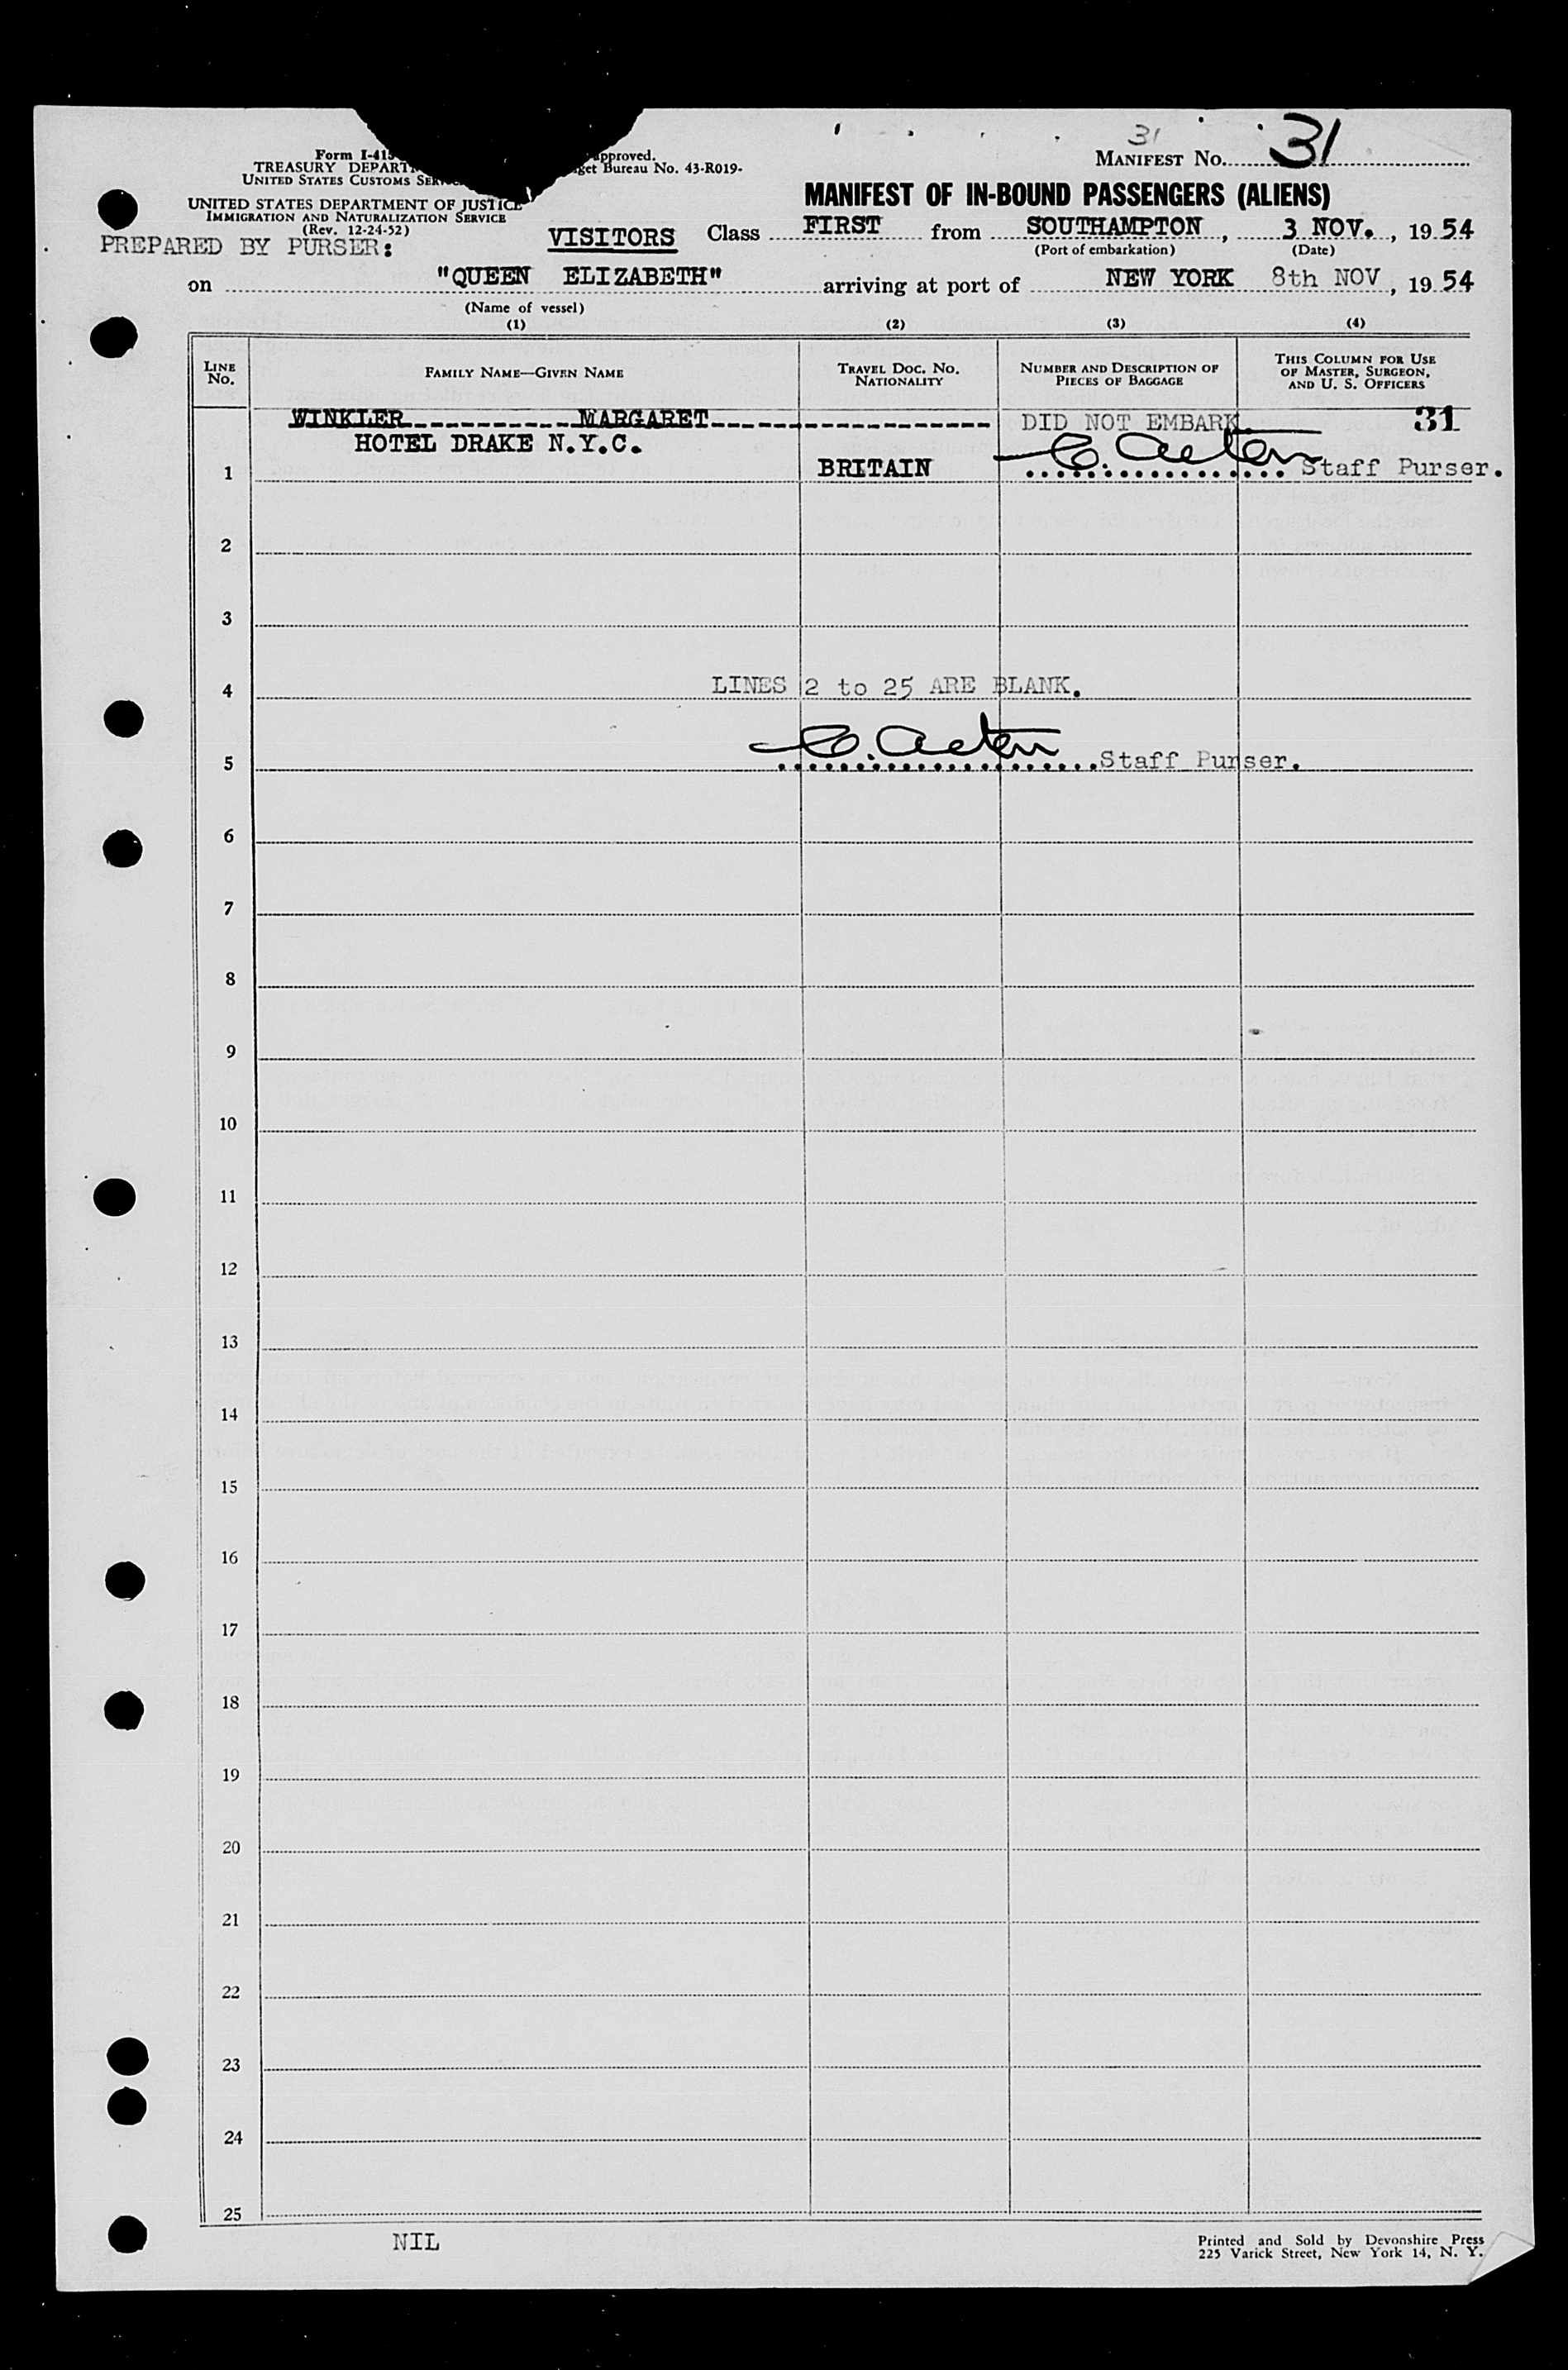 31
MANIFEST No. 31
Form I-415
TREASURY DEPARTM
UNITED STATES CUSTOMS SERVICE
approved.
Bureau No. 43-R019-
UNITED STATES DEPARTMENT OF JUSTICE
IMMIGRATION AND NATURALIZATION SERVICE
(Rev. 12-24-52)
MANIFEST OF IN-BOUND PASSENGERS (ALIENS)
PREPARED BY PURSER:
VISITORS Class FIRST from SOUTHAMPTON, 3 NOV., 1954
(Port of embarkation) (Date)
on "QUEEN ELIZABETH" arriving at port of NEW YORK 8th NOV, 1954
(Name of vessel)
(1) (2) (3) (4)
LINE No.
FAMILY NAME—GIVEN NAME
TRAVEL DOC. No. NATIONALITY
NUMBER AND DESCRIPTION OF PIECES OF BAGGAGE
THIS COLUMN FOR USE OF MASTER, SURGEON, AND U. S. OFFICERS
WINKLER-----------MARGARET------------------ DID NOT EMBARK 31
HOTEL DRAKE N.Y.C.
1 BRITAIN C. Acton Staff Purser.
2
3
4 LINES 2 to 25 ARE BLANK.
5 C. Acton Staff Purser.
6
7
8
9
10
11
12
13
14
15
16
17
18
19
20
21
22
23
24
25
NIL
Printed and Sold by Devonshire Press
225 Varick Street, New York 14, N. Y.